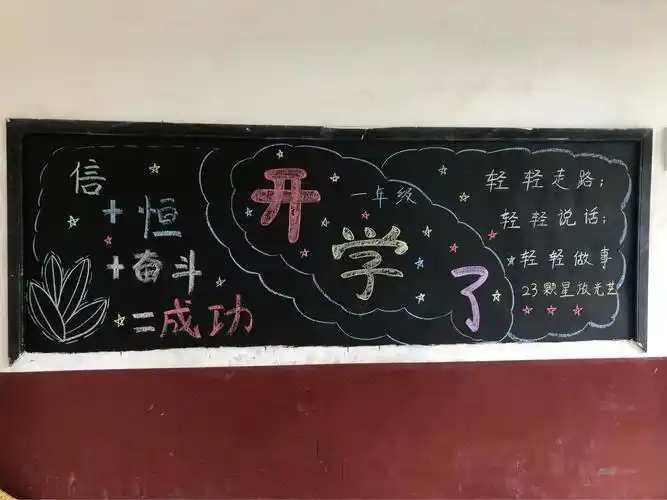 信
+恒
+奋斗
=成功
开学了
一年级
轻轻走路；
轻轻说话；
轻轻做事
23颗星放光芒